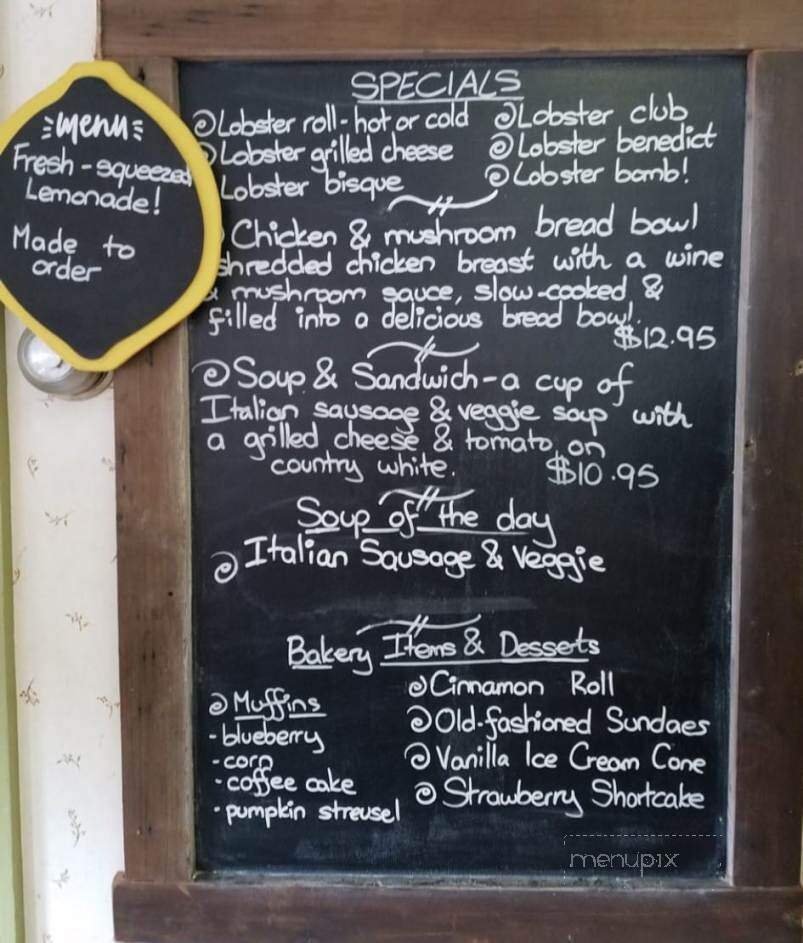 menu
Fresh-squeezed
Lemonade!
Made to
order
SPECIALS
Lobster roll-hot or cold
Lobster grilled cheese
Lobster bisque
Lobster club
Lobster benedict
Lobster bomb!
Chicken & mushroom bread bowl
shredded chicken breast with a wine
& mushroom sauce, slow-cooked &
filled into a delicious bread bowl.
$12.95
Soup & Sandwich-a cup of
Italian sausage & veggie soup with
a grilled cheese & tomato on
country white. $10.95
Soup of the day
Italian Sausage & Veggie
Bakery Items & Desserts
Muffins
-blueberry
-corn
-coffee cake
-pumpkin streusel
Cinnamon Roll
Old-fashioned Sundaes
Vanilla Ice Cream Cone
Strawberry Shortcake
menupix